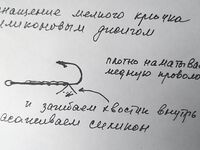 нащение мелкого крючка
ликоновым джигом
плотно наматыва
медную проволо
и загибаем хвостик внутрь
асаживаем силикон